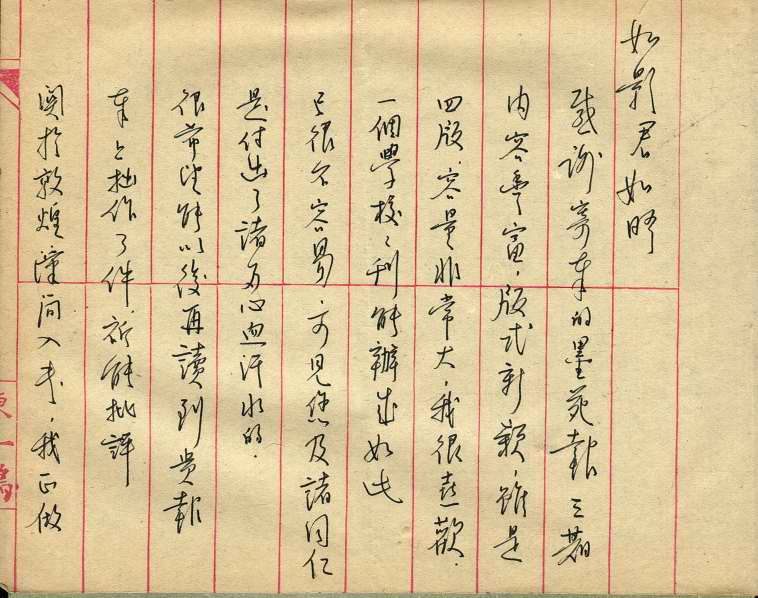 如影君如晤
感谢寄来的墨苑報三期
内容豐富，版式新颖，雖是
四版，容量非常大，我很喜歡。
一個學校之刊能辦成如此
已很不容易，可見您及諸同仁
是付出了諸多心血汗水的。
很希望能以後再讀到貴報
奉上拙作了件，祈能批評
関於敦煌漢简入书，我正做